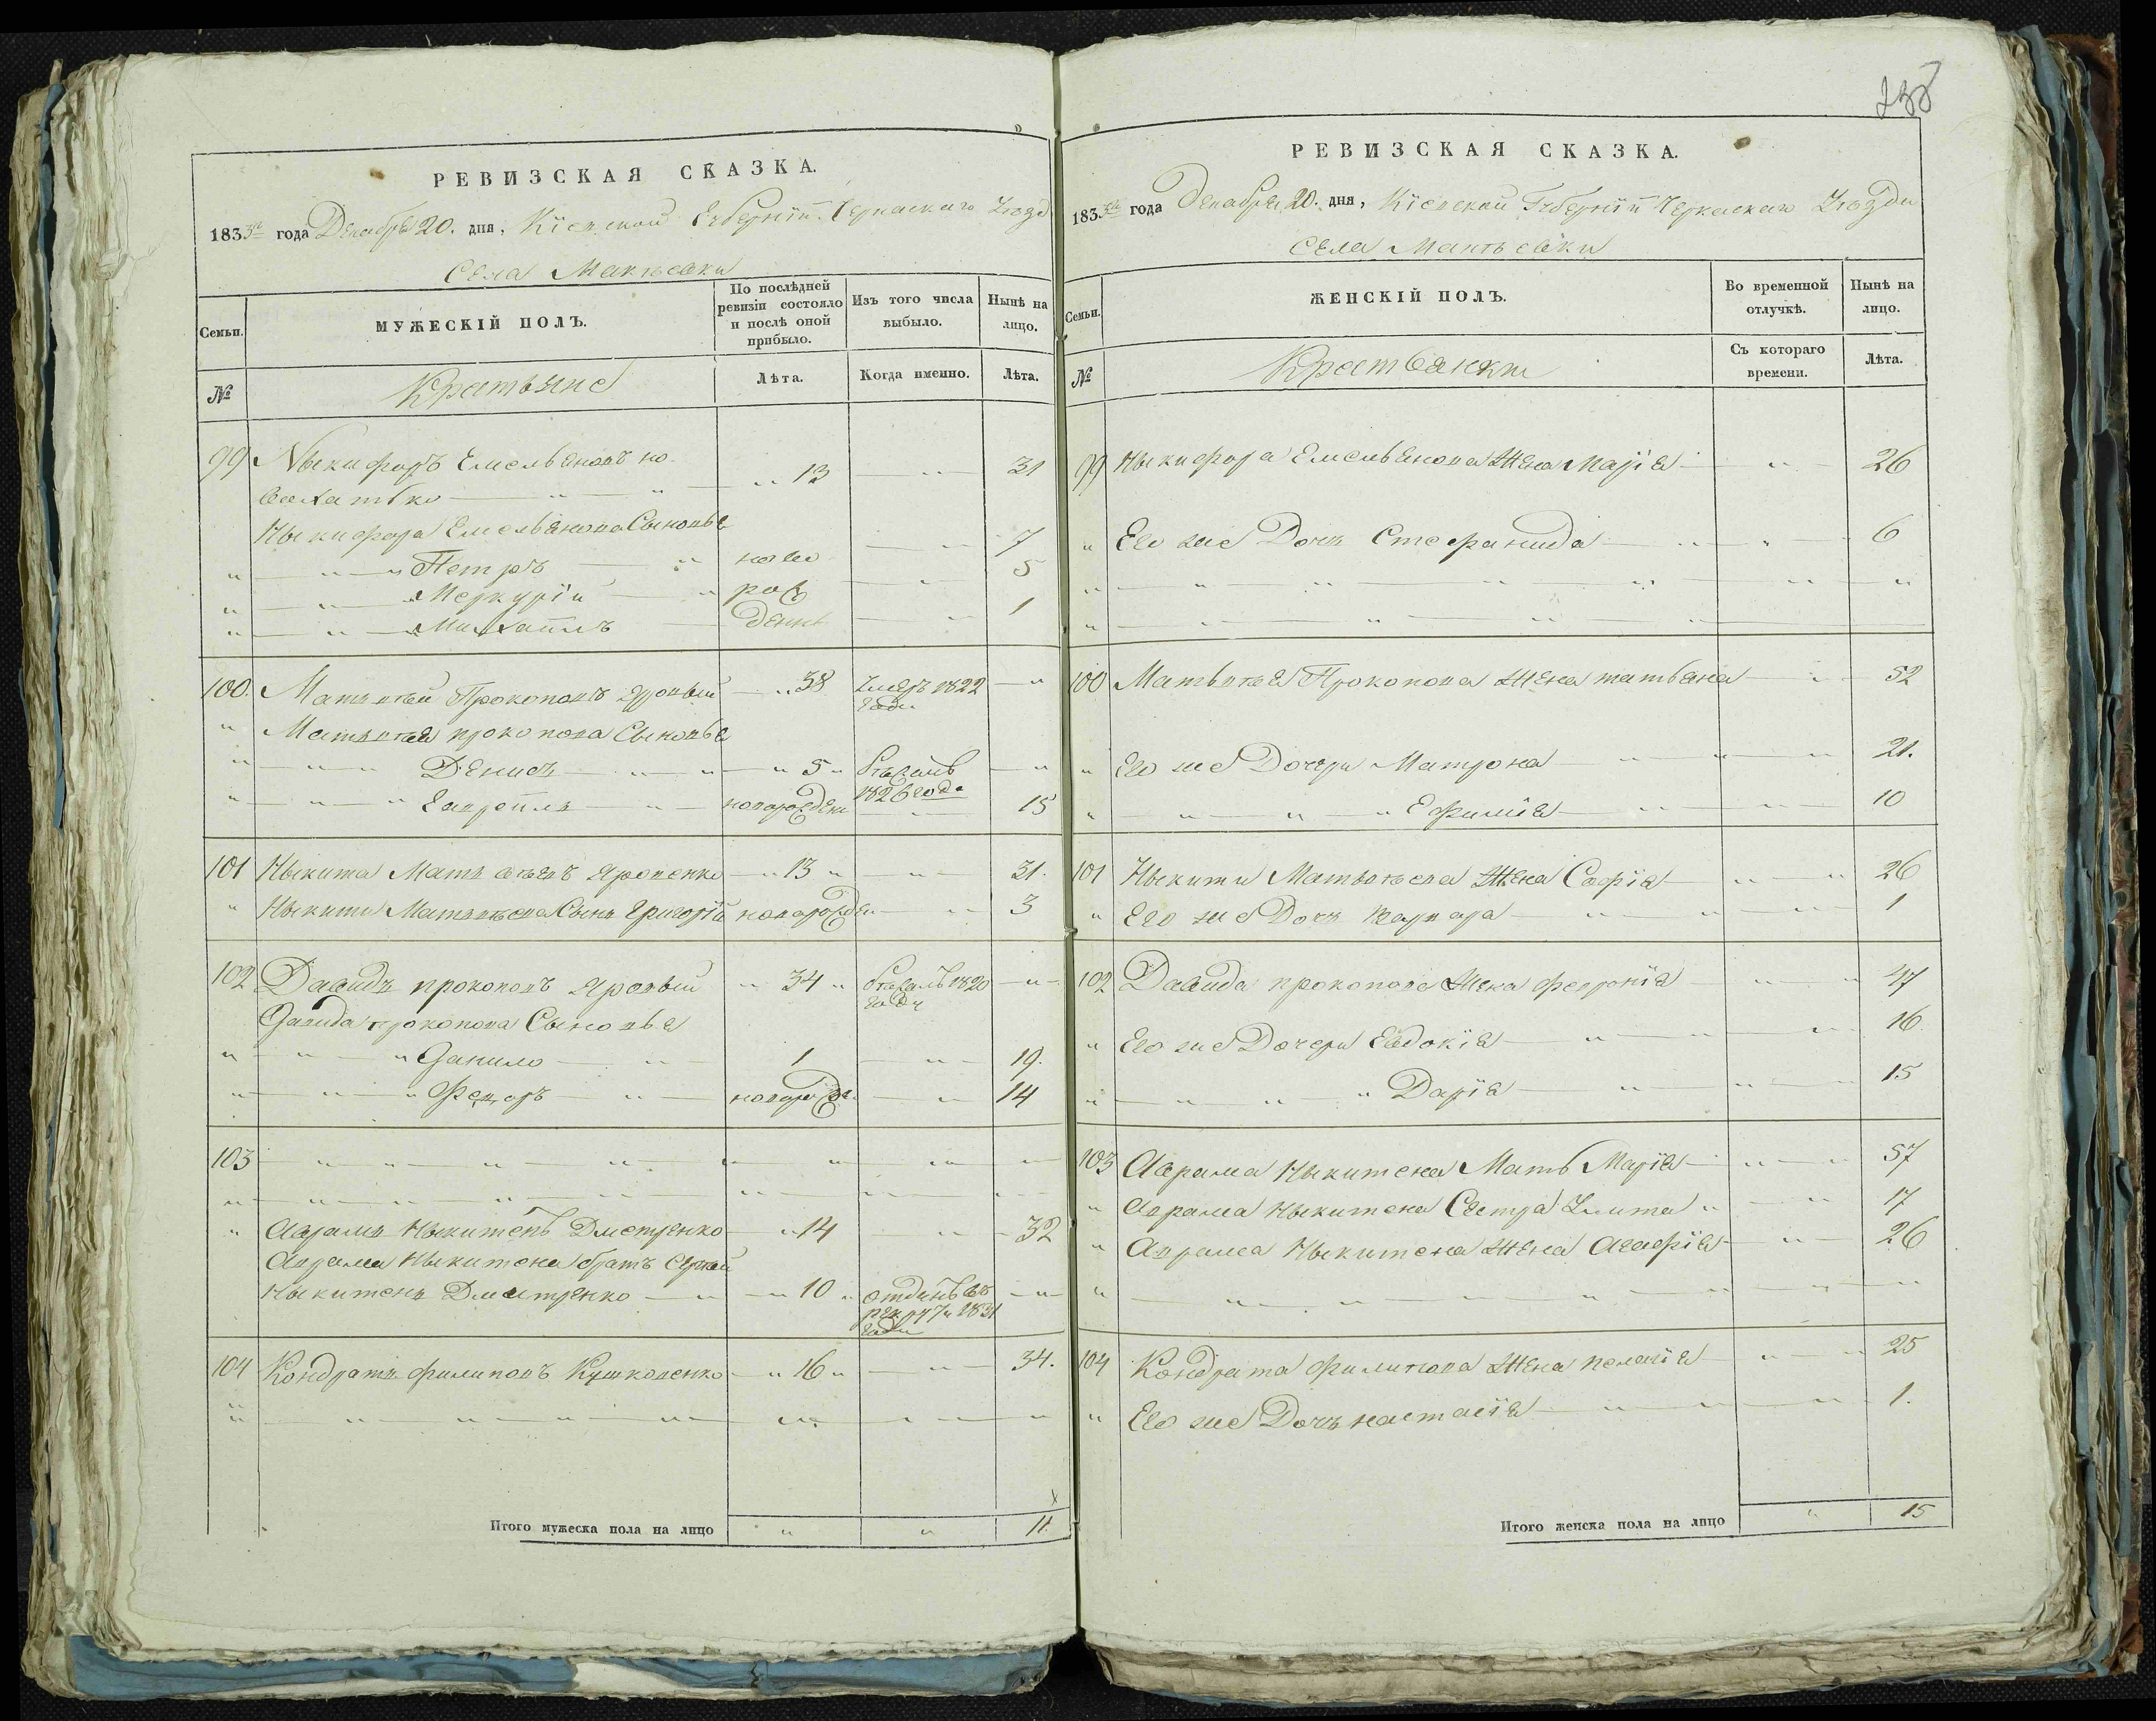 238
РЕВИЗСКАЯ СКАЗКА.
1833го года Декабря 20. дня, Кіевской Губерніи Черкаскаго Уезда
Села Макѣевки
Семьи.
МУЖЕСКІЙ ПОЛЪ.
По послѣдней ревизіи состояло и послѣ оной прибыло.
Изъ того числа выбыло.
Нынѣ на лицо.
№
Крестьяне
Лѣта.
Когда именно.
Лѣта.
99 Ныкифоръ Емельяновъ но- 13 31
Ныкифора Емельянова Сыновья
Петръ ново 7
Меркурій рож 5
Михаилъ денн 1
100. Матьвѣй Прокоповъ Яровый 38 Умеръ 1822 года
Матьвѣя прокопова Сыновья
Денисъ 5 1826 года
Гавріилъ новорожден 15
101 Ныкита Матвѣевъ Яровенко 13 31.
Ныкиты Матвѣева Сынъ Григорій новорожде 3
102 Давидъ прокоповъ Яровый 34 1820 году
Давида прокопова Сыновья
Данило 1 19.
Федоръ новорожде. 14
103
Аврамъ Ныкитенъ Дметренко 14 32
Аврама Ныкитена братъ Сергей
Ныкитенъ Дмитренко 10 отданъ въ рекруты 1831 года
104 Кондратъ филиповъ Кушковенко 16 34.
Итого мужеска пола на лицо 11.
РЕВИЗСКАЯ СКАЗКА.
1833го года Декабря 20. дня, Кіевской Губерніи Черкаскаго Уѣзда
Села Макѣевки
Семьи.
ЖЕНСКІЙ ПОЛЪ.
Во временной отлучкѣ.
Нынѣ на лицо.
№
Крестьянки
Съ котораго времени.
Лѣта.
99 Ныкифора Емельянова Жена Марія 26
Его же Дочь Стефанида 6
100 Матьвѣя Прокопова Жена татьяна 52
Его же Дочери Матрона 21.
Ефимія 10
101 Ныкиты Матьвѣева Жена Софія 26
Его же Дочь Варвара 1
102 Давида прокопова Жена февронія 47
Его же Дочери Евдокія 16
Дарія 15
103 Аврама Ныкитена Мать Марія 57
Аврама Ныкитена Сестра Улита 17
Аврама Ныкитена Жена Агафія 26
104 Кондрата Филипова Жена пелагія 25
Его же Дочь настасія 1.
Итого женска пола на лицо 15